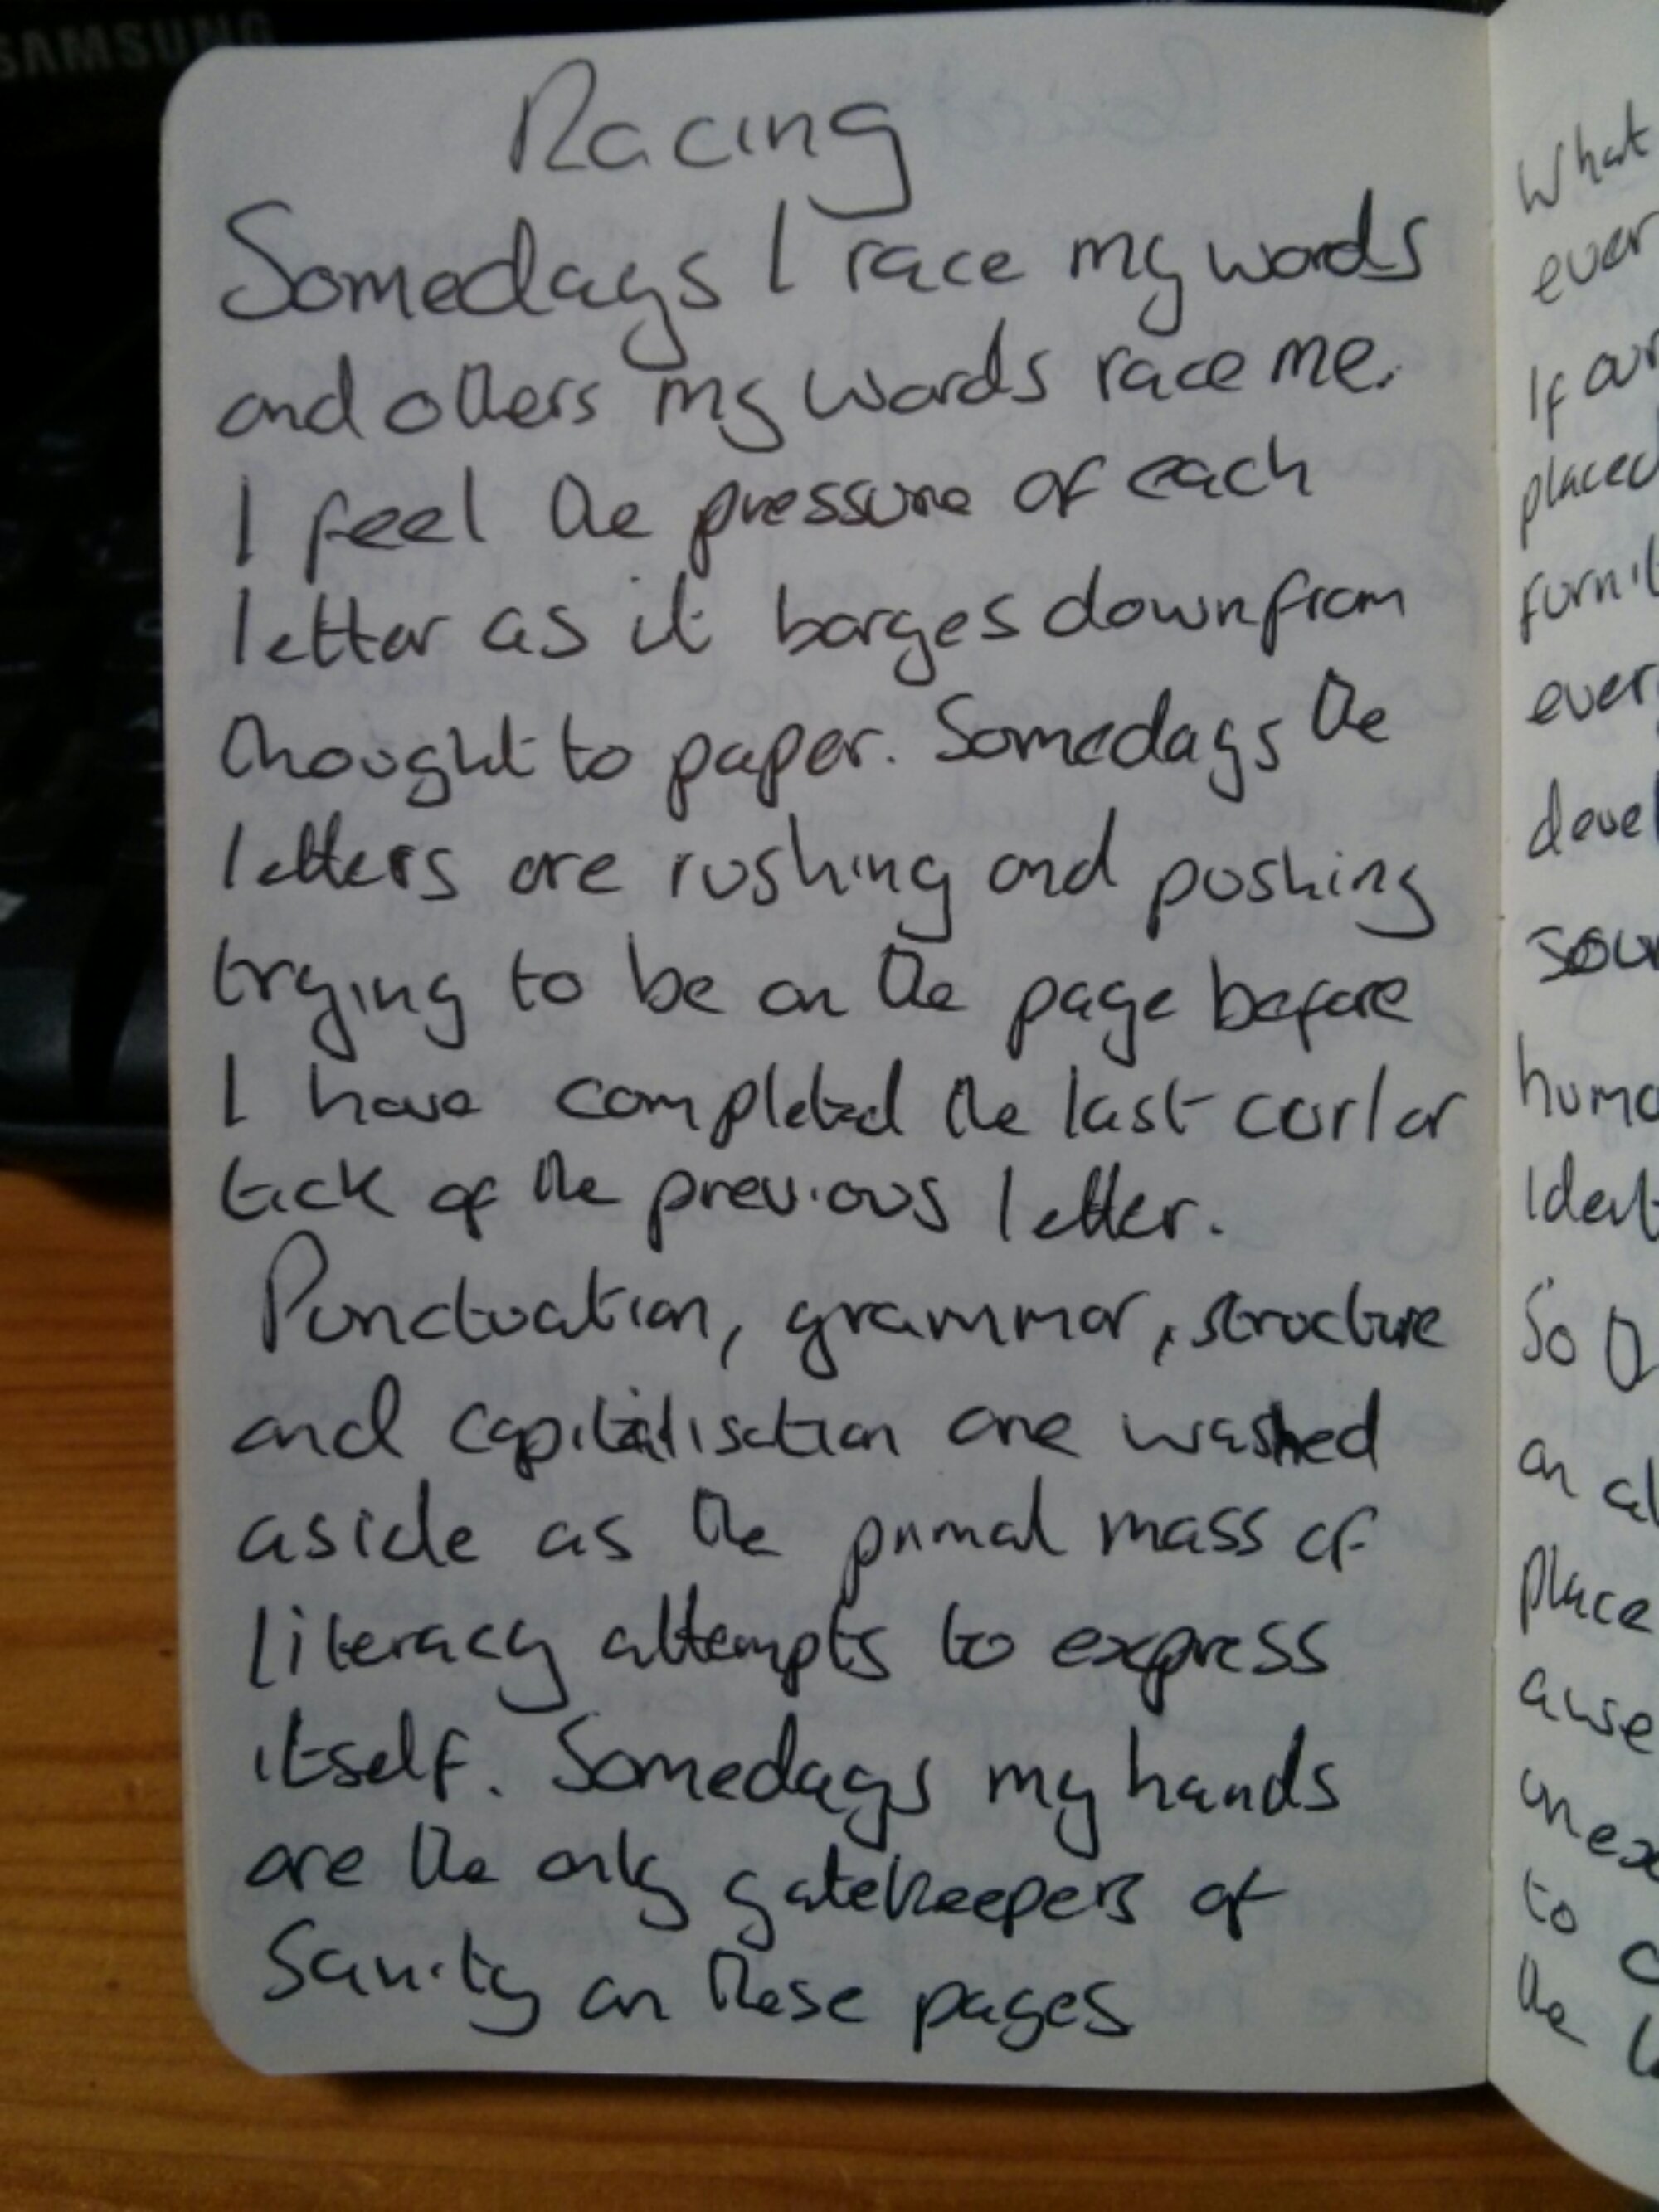 SAMSUNG
Racing
Somedays I race my words
and others my words race me.
I feel the pressure of each
letter as it barges down from
thought to paper. Somedays the
letters are rushing and pushing
trying to be on the page before
I have completed the last curl or
tick of the previous letter.
Punctuation, grammar, structure
and capitalisation are washed
aside as the primal mass of
literacy attempts to express
itself. Somedays my hands
are the only gatekeepers of
Sanity on these pages
What
ever
If our
placed
furnit
every
devel
sour
huma
Ident
So
on al
place
arise
unex
to
the